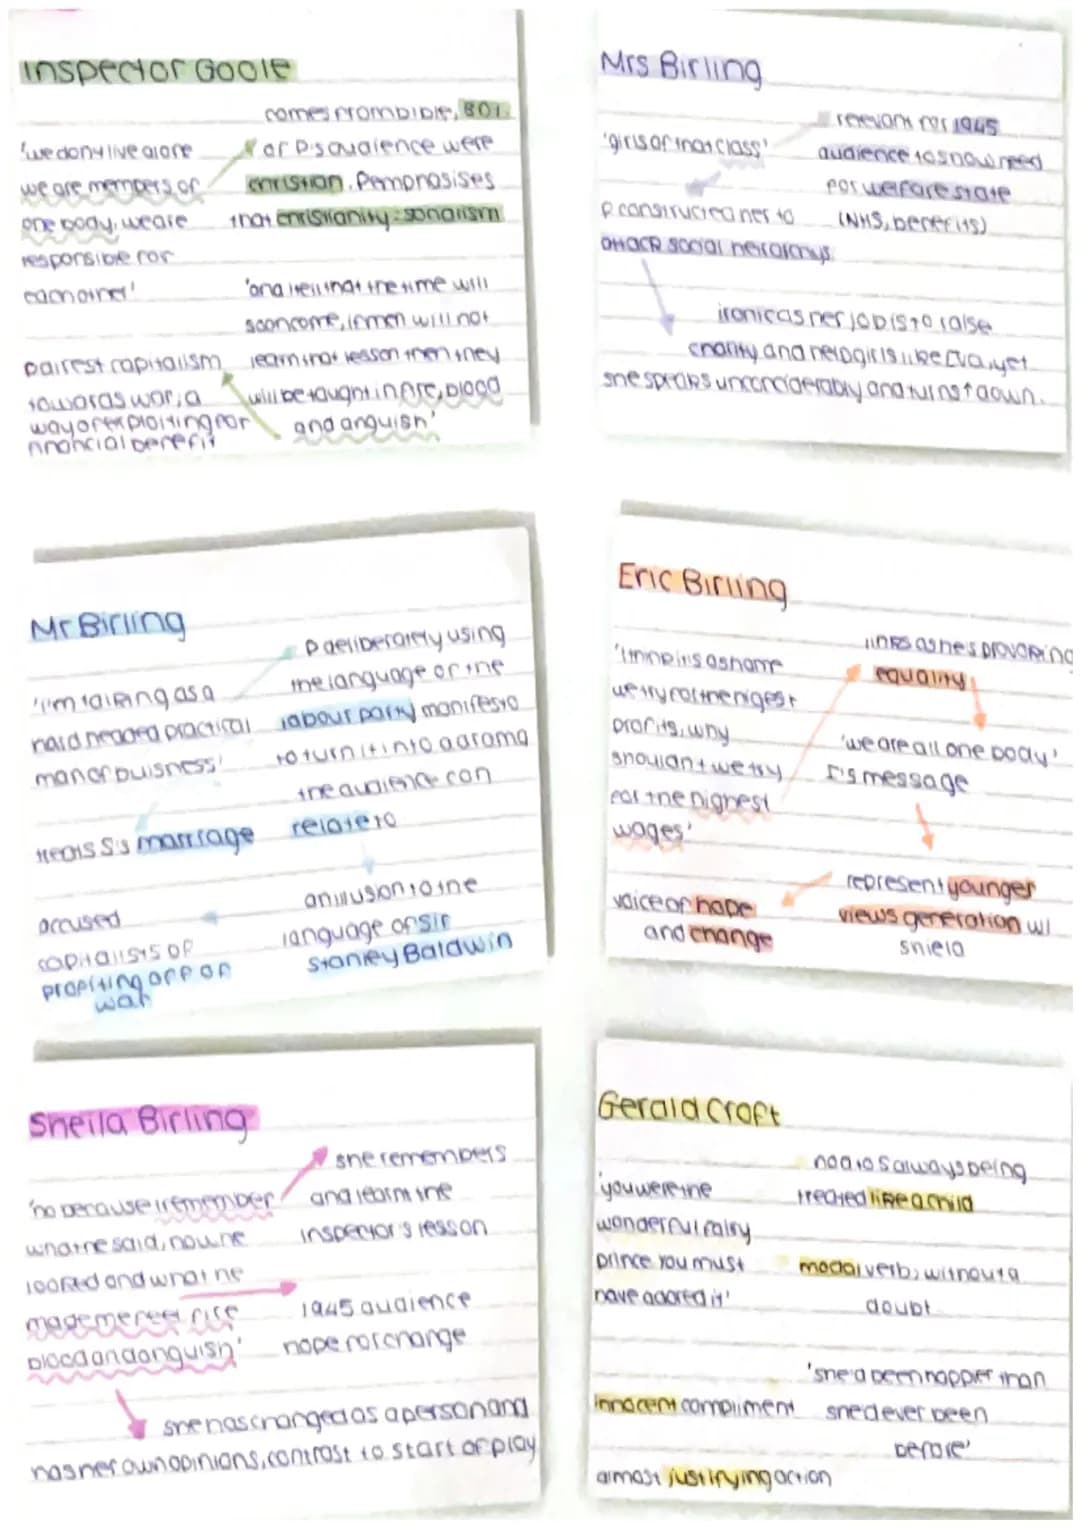 Inspector Goole
comes from bible, 80%
'we dont live alone
of P's audience were
we are members of
christian. P emphasises
one body, we are
that christianity = sonalism
responsible for
eachother'
'and i tell that the time will
soon come, if men will not
learn that lesson then they
will be taught in fire, blood
and anguish'
capitalism
towards war, a
way of exploiting for
financial benefit
Mrs Birling
relevant for 1945
'girls of that class'
audience to show need
for welfare state
P constructed her to
(NHS, benefits)
attack social heirarchys.
ironic as her job is to raise
charity and help girls like Eva, yet
she speaks unconciderably and turns ↑ down.
Mr Birling
P deliberately using
'i'm talking as a
the language of the
hard headed practical
labour party manifesto
man of buisness'
to turn it into a drama
the audience can
relate to
treats S's marriage
an illusion to the
accused
language of sir
capitalists of
Stanley Baldwin
profiting off of
war
Eric Birling
links as he's provoking
'i think its a shame
equality
we try for the higest
profits, why
'we are all one body'
shouldn't we try
I's message
for the highest
wages'
represent younger
voice of hope
views generation w/
and change
shiela
Sheila Birling
she remembers
'no because i remember
and learnt the
what he said, how he
inspector's lesson
looked and what he
made me feel fire
1945 audience
blood and anguish'
hope for change
she has changed as a person and
has her own opinions, contrast to start of play
Gerald Croft
always being
'you were the
treated like a child
wonderful fairy
prince you must
modal verb, without a
have adored it'
doubt
'she'd been happier than
innocent compliment
she'd ever been
before'
almost justifying action